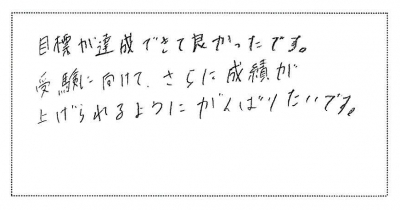 目標が達成できて良かったです。
受験に向けて、さらに成績が
上げられるようにがんばりたいです。